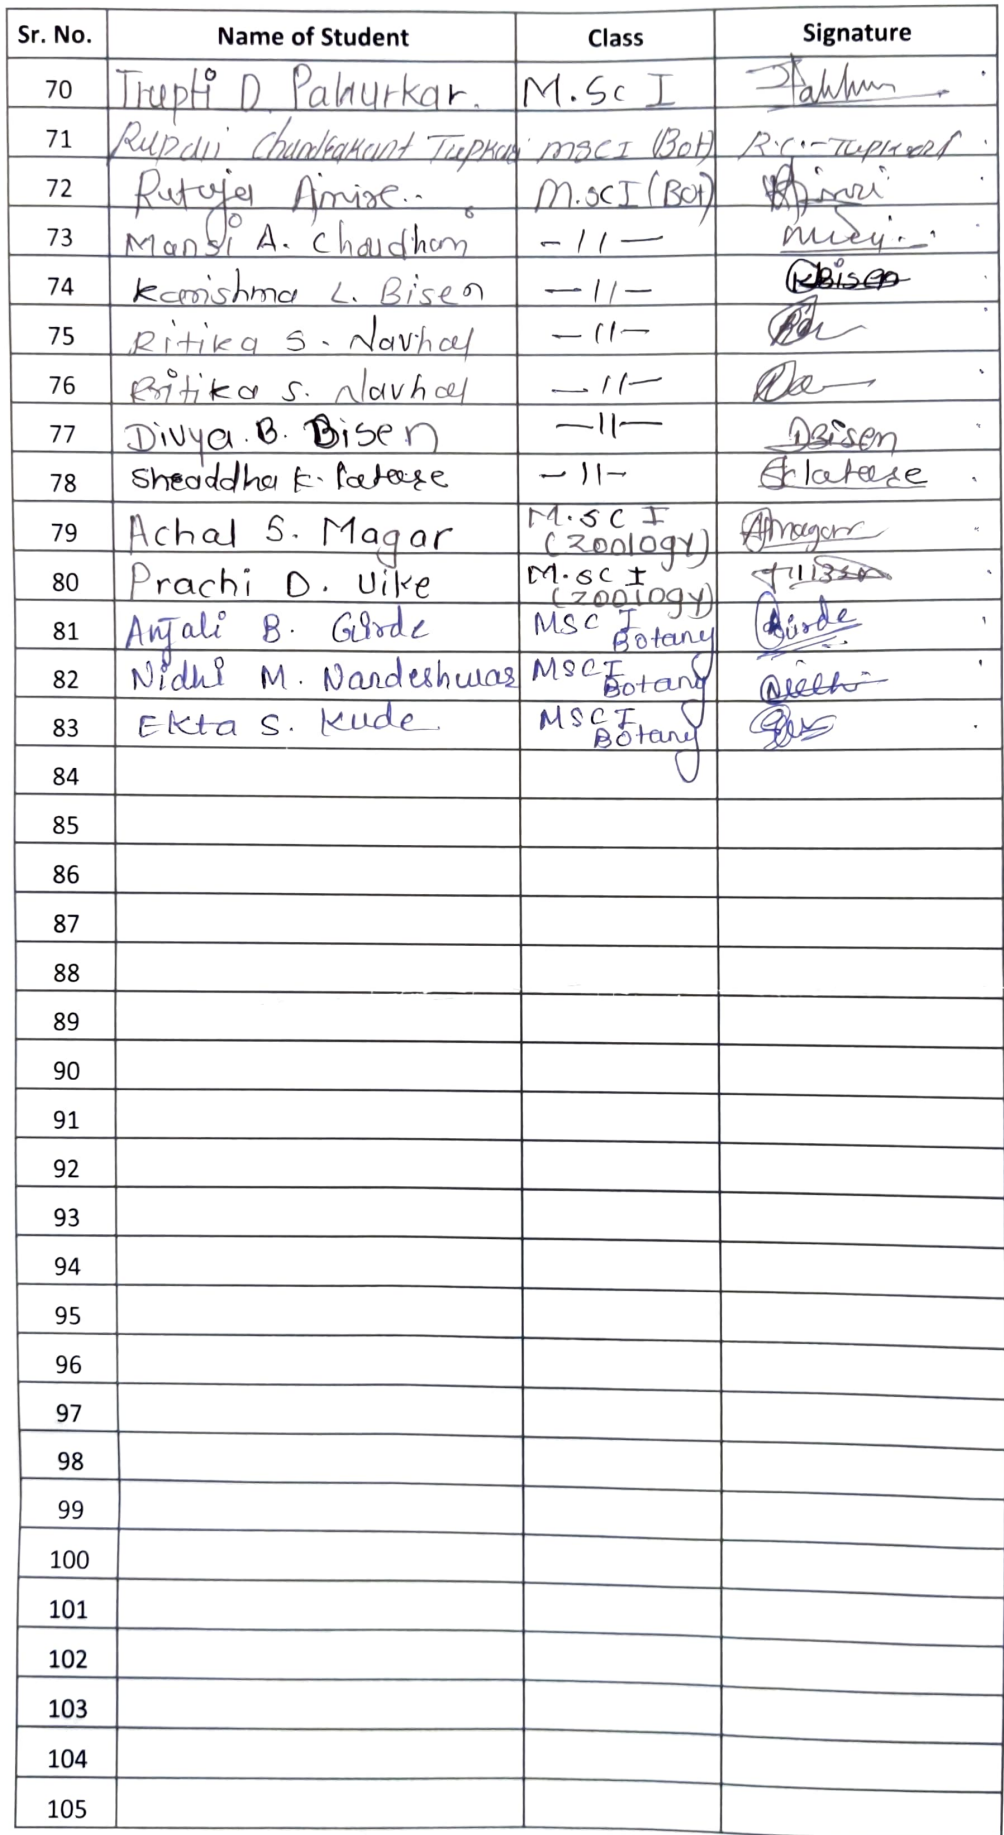 Sr. No. Name of Student Class Signature
70 Trupti D. Pahurkar. M.Sc I
71 Rupali Chandrakant Tupkar MSC I (Bot) R.C. Tupkar
72 Rutuja M.SC I (Bot)
73 Mansi A. Choudhari -11-
74 Karishma L. Bisen -11- KBisen
75 Ritika S. Navhal -11-
76 Ritika S. Navhal -11-
77 Divya. B. Bisen -11- DBisen
78 K. -11-
79 Achal S. Magar M.SC I
(Zoology) AMagar
80 Prachi D. Uike M.SC I
(Zoology)
81 Anjali B. Girde MSC I
Botany Girde
82 Nidhi M. Nandeshwar MSC I
Botany Nidhi
83 Ekta S. Kude MSC I
Botany
84
85
86
87
88
89
90
91
92
93
94
95
96
97
98
99
100
101
102
103
104
105